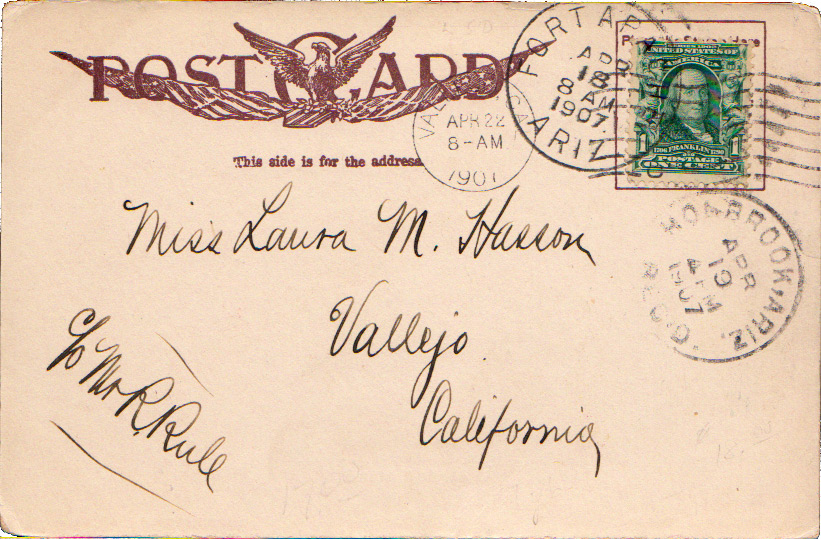 POST CARD
This side is for the address.
Miss Laura M. Hasson
Vallejo
California
c/o Mr R. Rule
FORT APACHE
APR
18
8 AM
1907
ARIZ
APR 22
8-AM
1907
HOLBROOK, ARIZ.
APR
19
AM
1907
REC'D.
SERIES 1902
UNITED STATES OF
AMERICA
1706 FRANKLIN 1790
1 POSTAGE 1
ONE CENT